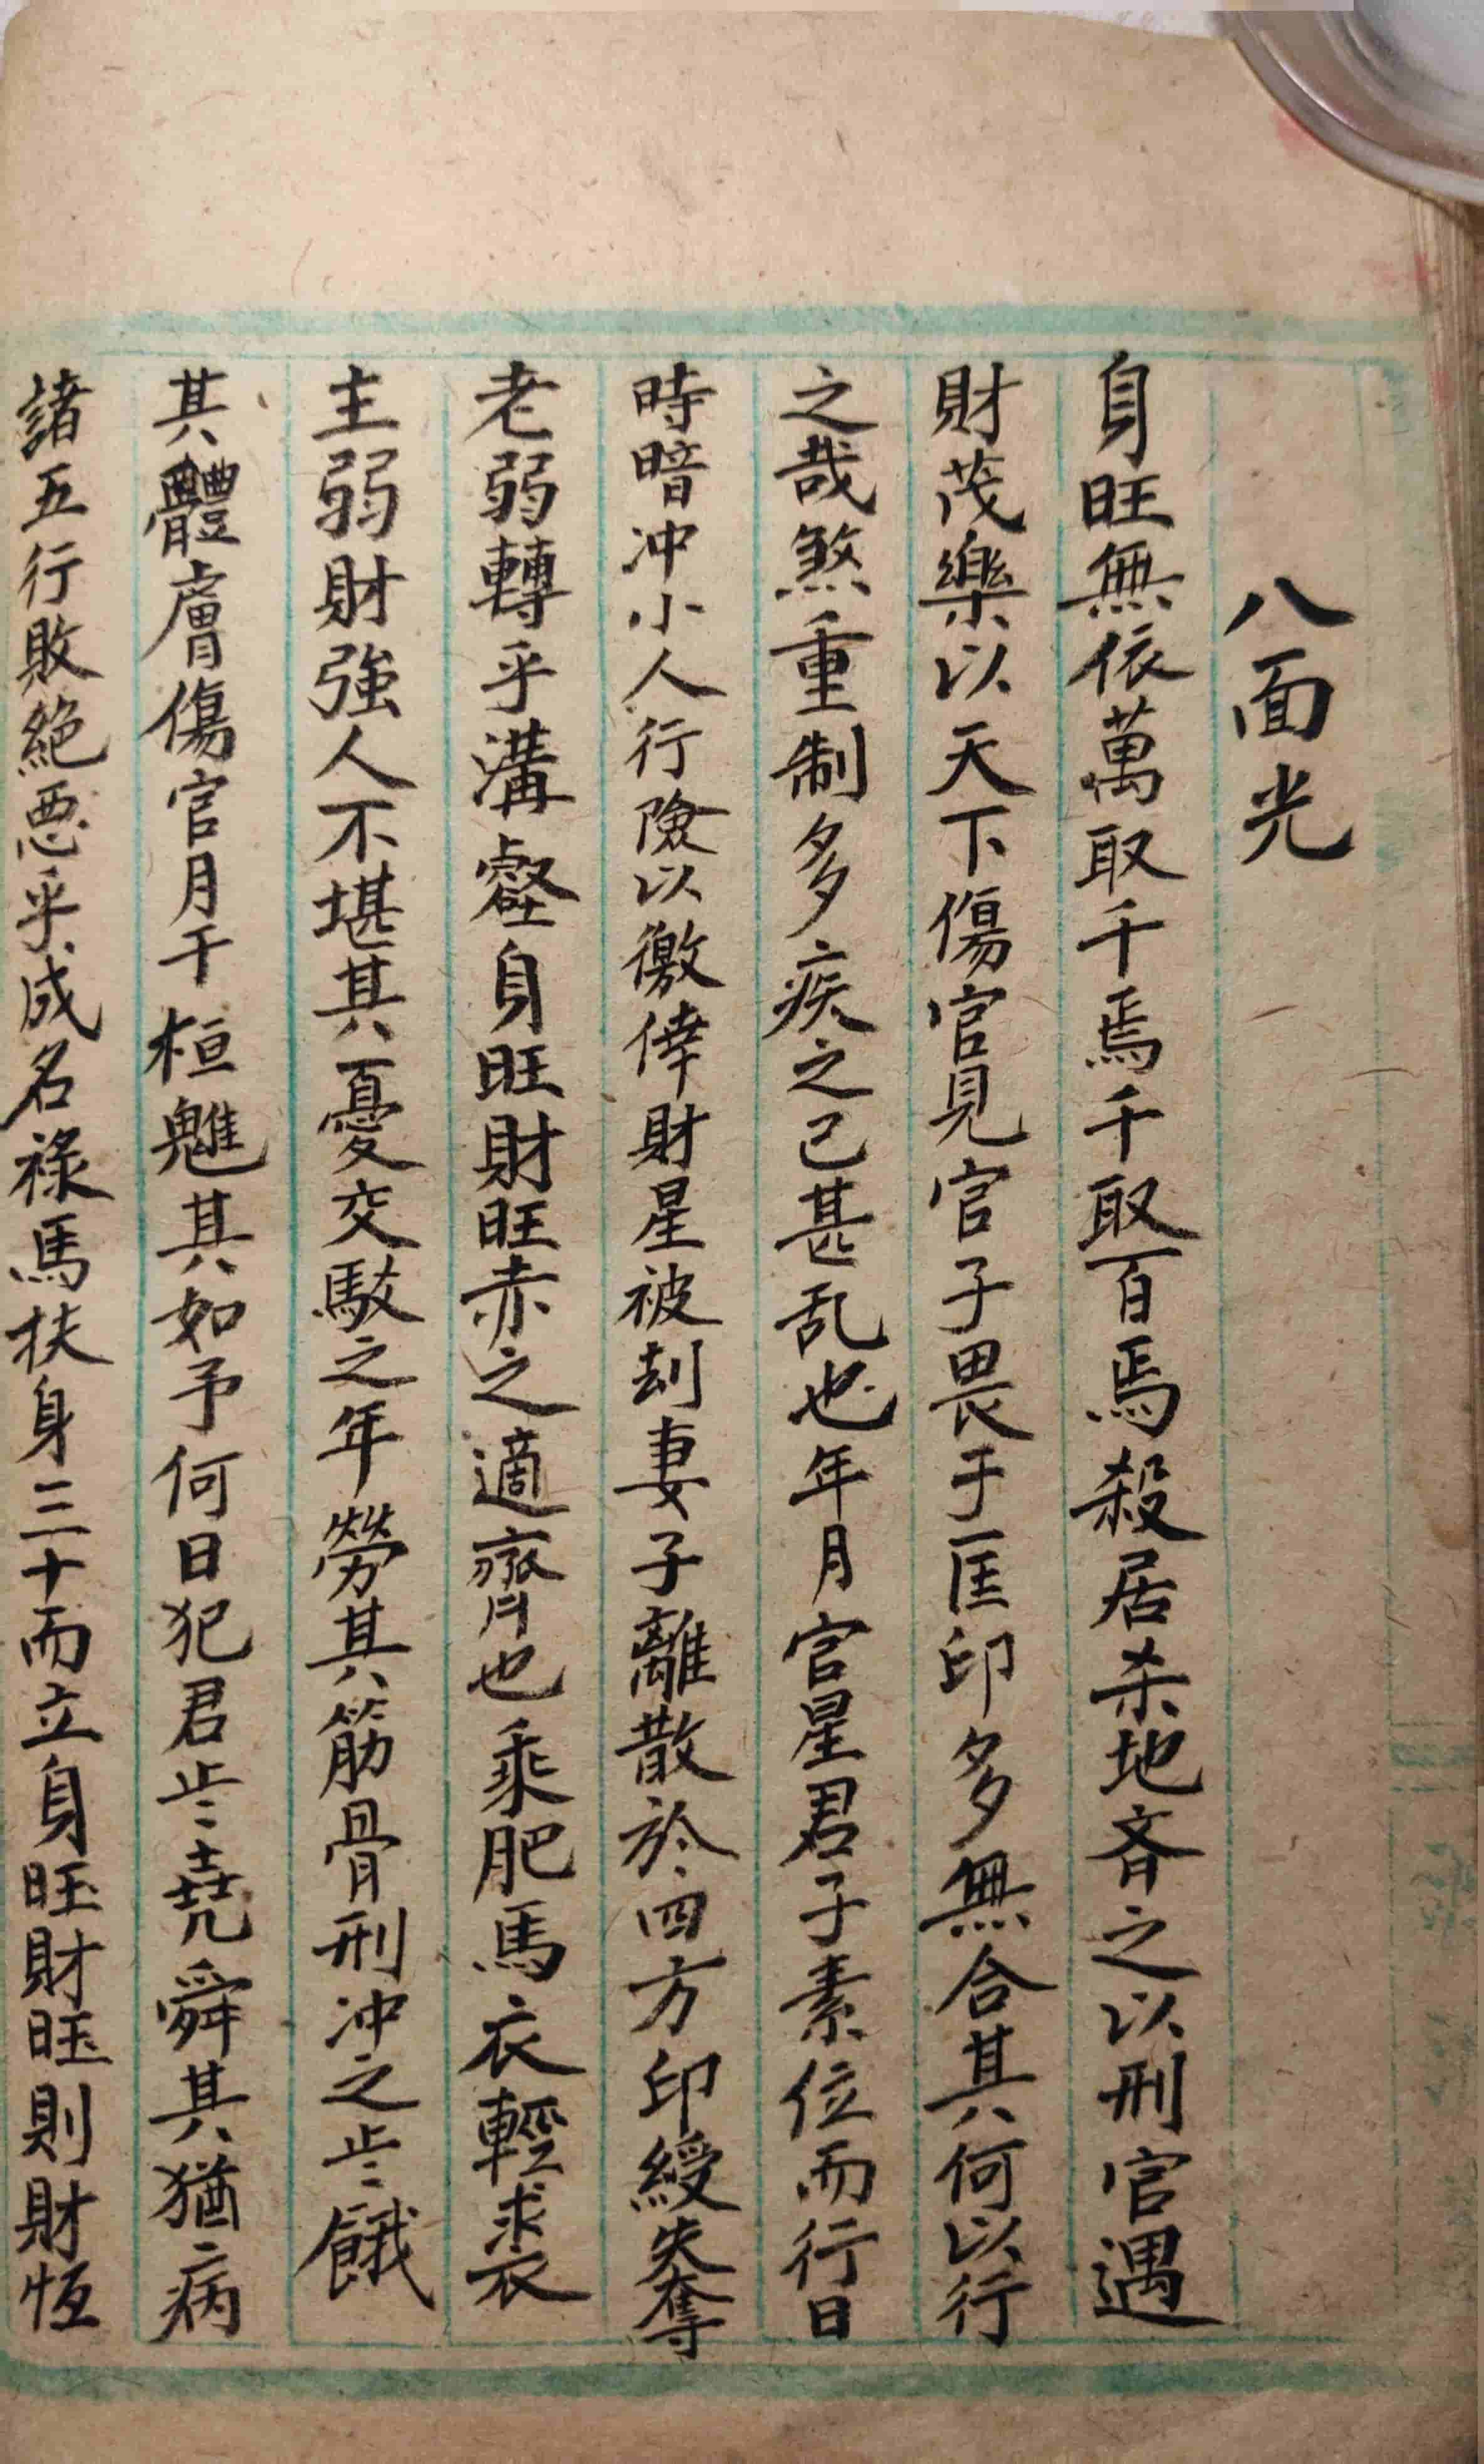 八面光
身旺無依萬取千焉千取百焉殺居杀地斉之以刑官遇
財茂樂以天下傷官見官子畏于匡印多無合其何以行
之哉煞重制多疾之已甚乱也年月官星君子素位而行日
時暗冲小人行險以徼倖財星被刦妻子離散於四方印綬失奪
老弱轉乎溝壑身旺財旺赤之適齊也乘肥馬衣輕裘
主弱財強人不堪其憂交馱之年勞其筋骨刑冲之歩餓
其體膚傷官月干桓魋其如予何日犯君歩堯舜其猶病
諸五行敗絕悪乎成名祿馬扶身三十而立身旺財旺則財恆